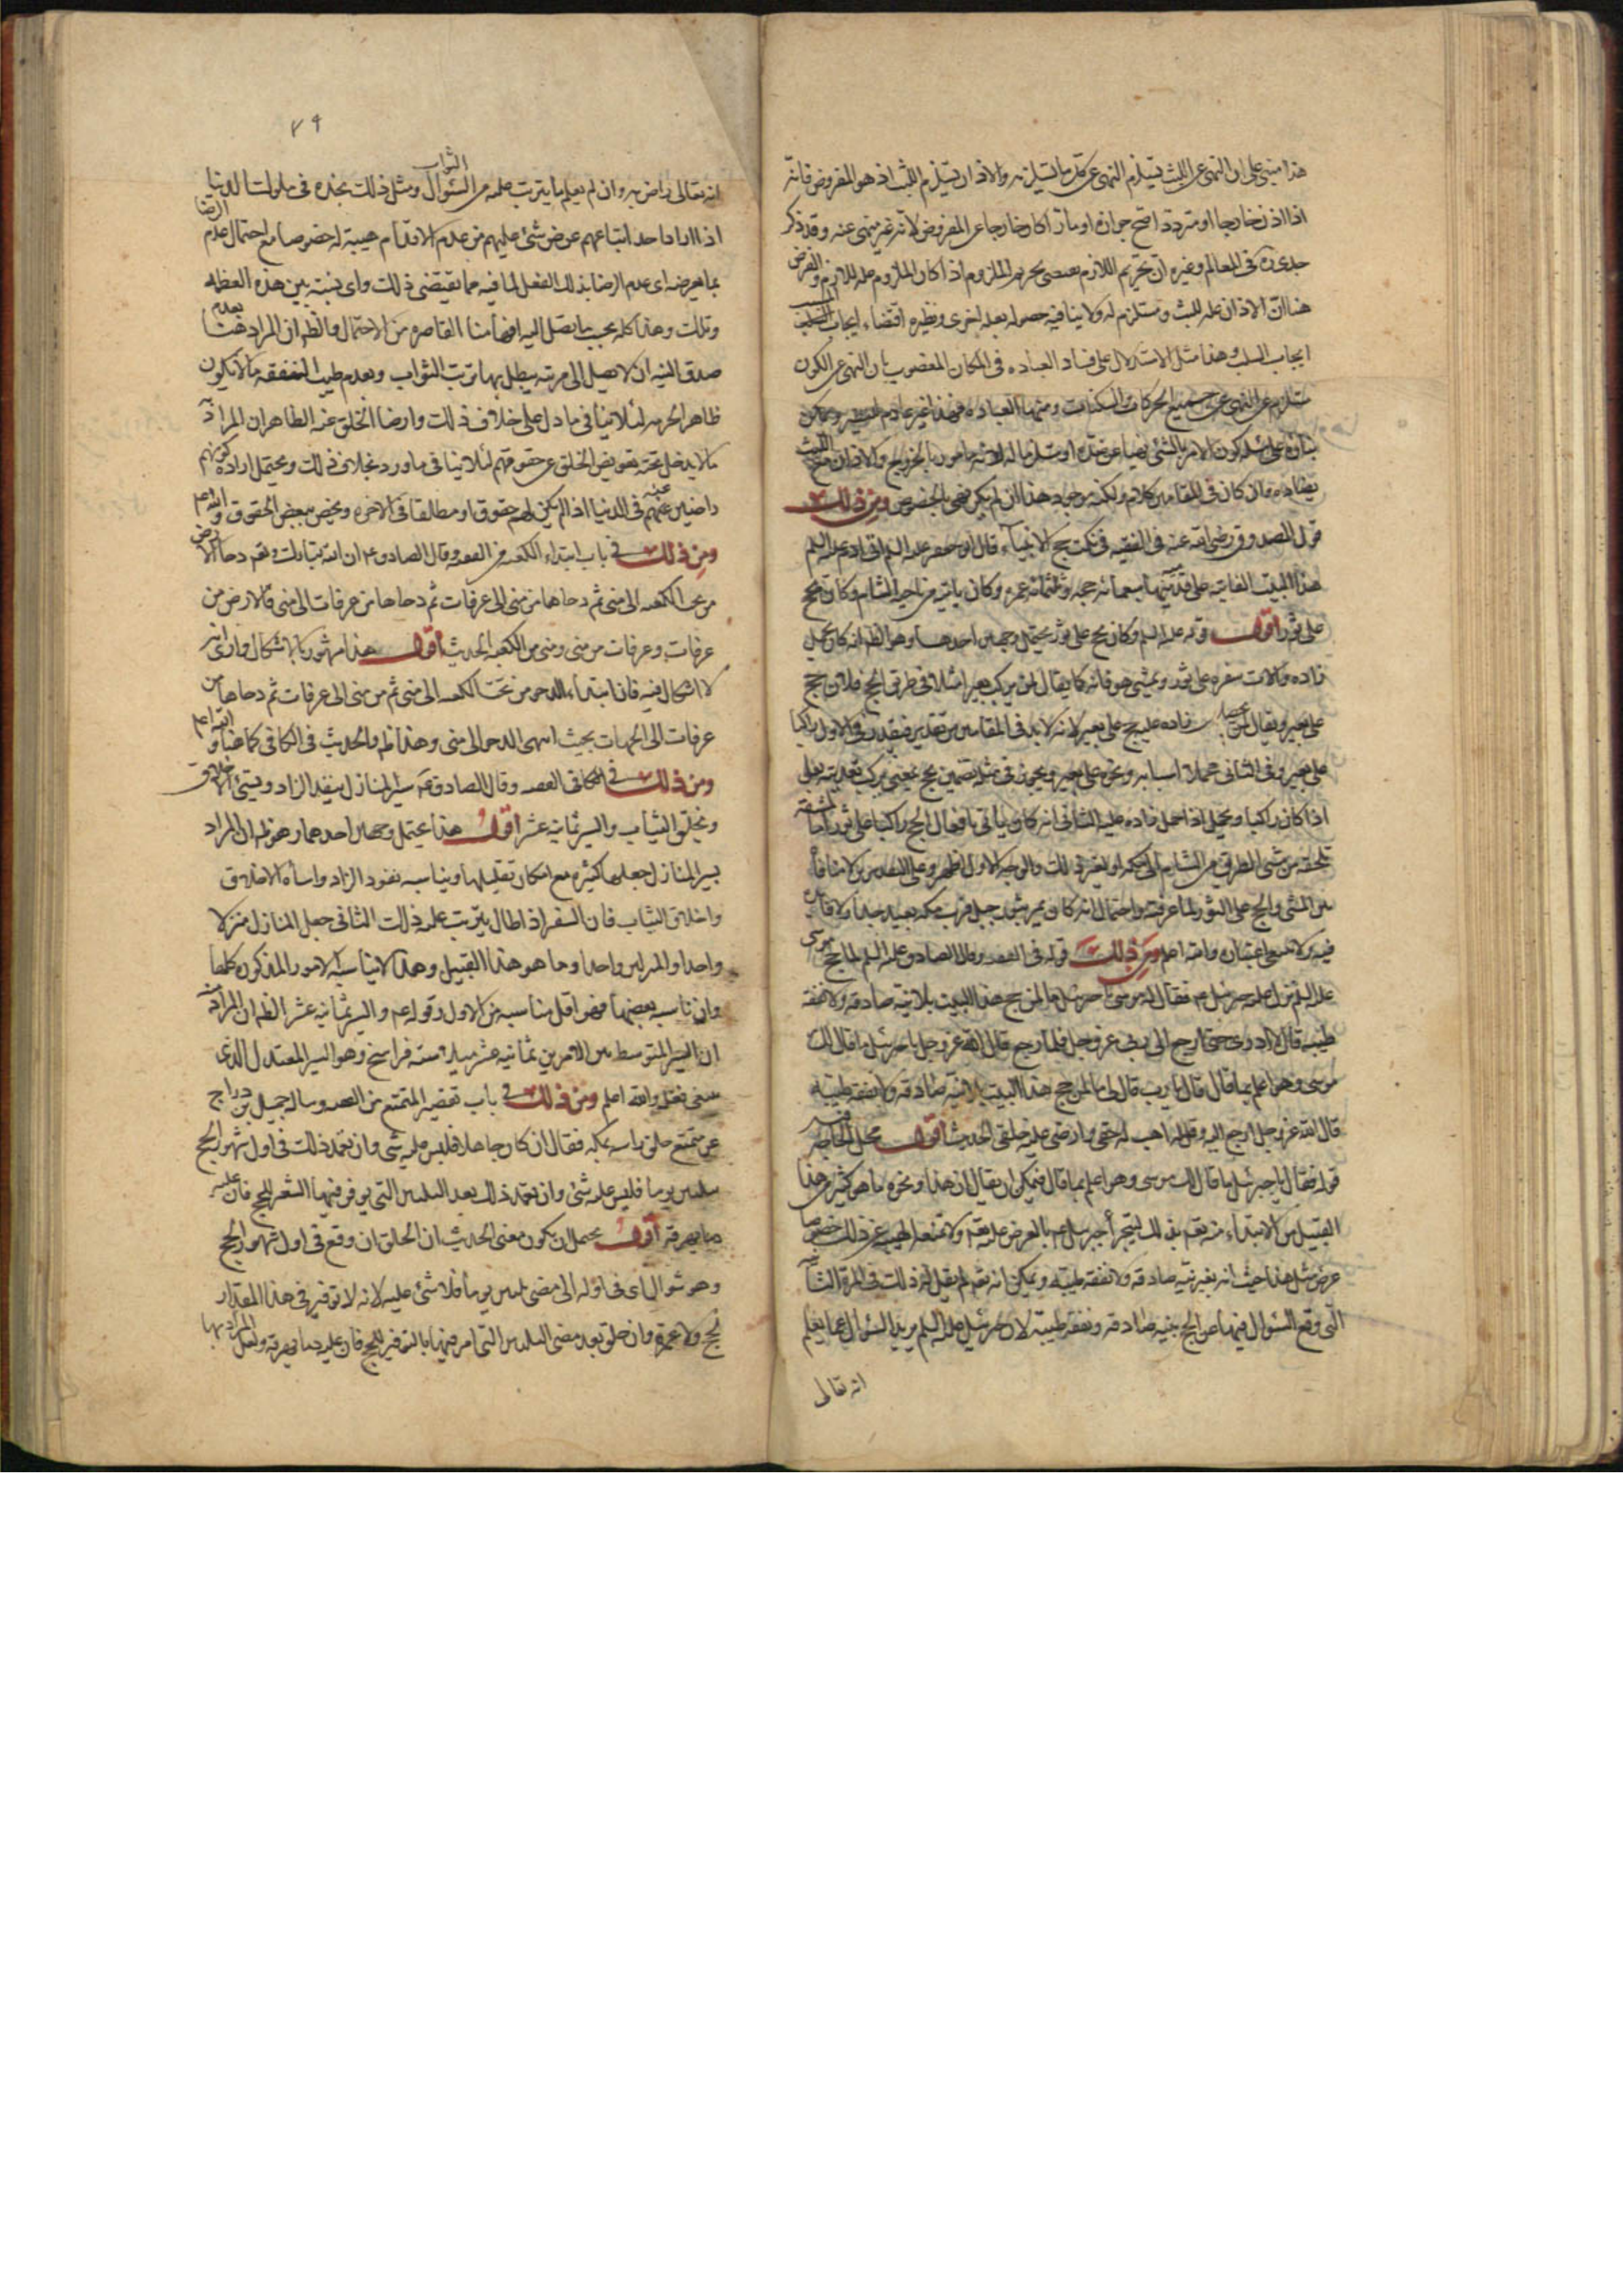 هذا مبني على ان النهى عن اللبث يستلزم النهى عن كل ما يستلزمه والاذان يستلزم اللبث اذ هو المفروض فانه
اذا اذن خارجا او مترددا صح جوازه او مازاد كان خارجا عن المفروض لانه غير منهى عنه وقد ذكر
جدى ره فى المعالم وغيره ان تحريم اللازم يقتضى تحريم الملزوم اذا كان الملزوم عله للازم والفرض
هنا ان الاذان عله للبث ومستلزم له ولا ينافيه حصوله بعله اخرى ونظيره اقتضاء ايجاب المسبب
ايجاب السبب وهذا مثل الاستدلال على فساد العباده فى المكان المغصوب بان النهى عن الكون
يستلزم عن النهى عن جميع الحركات والسكنات ومنها العباده فهذا غير
بناؤه على مسئله كون الامر بالشئ نهيا عن ضده او يستلزمه لانه مامور بالخروج والاذان مع اللبث
يضاده وان كان فى المقامين كلام ولكنه موجود هذا ان لم يكن نهى بالخصوص ومن ذلك
قول الصدوق رضى الله عنه فى الفقيه فى نكت حج الانبياء قال ابو جعفر عليه السلم اتى ادم عليه السلم
هذا البيت الف اتيه على قدميه منها سبعمائه حجه وثلثمائه عمره وكان ياتيه من ناحيه الشام وكان يحج
على ثور اقول قوله عليه السلم وكان يحج على ثور يحتمل وجهين احدهما وهو الظ انه كان يحمل
زاده والات سفره على ثور ويمشى هو فانه كما يقال لمن يركب بعيرا مثلا فى طريق الحج فلان يحج
على بعير ويقال لمن يحمل زاده عليه يحج على بعير لانه لابد فى المقامين من تقدير فيقدر فى الاول راكبا
على بعير وفى الثانى حملا اسبابه ونحوه على بعير ويجوز فى مثله تضمين يحج بمعنى يركب تعديته بعلى
اذا كان راكبا ويحمل اذا حمل زاده عليه الثانى انه كان ياتى بافعال الحج راكبا على ثور لمشقه
تلحقه من مشى الطريق من الشام الى مكه او لغير ذلك والوجه الاول اظهر وعلى التقديرين لا منافاة
بين المشى والحج على الثور لما عرفته واحتمال انه كان يمر بثور جبل قرب مكه بعيد جدا ولا فائده
فيه ولا يحج اعتباره والله اعلم ومن ذلك قوله فى الفقيه وقال الصادق عليه السلم لما حج موسى
عليه السلم نزل عليه جبرئيل عم فقال له موسى يا جبرئيل ما لمن حج هذا البيت بلا نيه صادقه ولا نفقه
طيبه قال لا ادرى حتى ارجع الى ربى عز وجل فلما رجع قال الله عز وجل يا جبرئيل ما قال لك
موسى وهو اعلم بما قال قال يا رب قال لى ما لمن حج هذا البيت بلا نيه صادقه ولا نفقه طيبه
قال الله عز وجل ارجع اليه وقل له اهب له حقى وارضى عليه خلقى الحديث اقول
قوله فقال يا جبرئيل ما قال لك موسى وهو اعلم بما قال فيمكن ان يقال ان هذا ونحوه ما هو كثير من هذا
القبيل من الابتداء منه تعم بذلك ليتجرأ جبرئيل عم بالعرض عليه تعم ولا تمنعه الهيبه عن ذلك خصوصا
عرض مثل هذا حيث انه بغير نيه صادقه ولا نفقه طيبه ويمكن انه تعم لم يقل له ذلك فى المرة الثانيه
التى وقع السؤال فيها عن الحج بنيه صادقه ونفقه طيبه لان جبرئيل عليه السلم يريد السؤال عما يعلم
انه تعالى
٤٩
انه تعالى راض به وان لم يعلم ما يترتب عليه من السؤال الثواب ومثل ذلك نجده فى ملوك الدنيا
اذا اراد احد اتباعهم عرض شئ عليهم من عدم الاقدام هيبة له خصوصا مع احتمال عدم الرضا
بما يعرضه اى عدم الرضا بذلك الفعل لما فيه مما يقتضى ذلك واى نسبة بين هذه العظمه
وتلك وهذا كله بحسب ما يصل اليه افهامنا القاصره من الاحتمال والظ ان المراد هنا بعدم
صدق النيه ان لا يصل الى مرتبه يبطل بها ترتب الثواب وبعدم طيب النفقه ما لا يكون
ظاهر الحرمه لئلا ينافى ما دل على خلاف ذلك وارضا الخلق عنه الظاهر ان المراد به
ما لا يدخل تحته تعويض الخلق عن حقوقهم لئلا ينافى ما ورد بخلاف ذلك ويحتمل ارادة كونهم
راضين عنه فى الدنيا اذا لم يكن لهم حقوق او مطلقا فى الاخره ويخص ببعض الحقوق والله اعلم
ومن ذلك فى باب ابتداء الكعبه من الفقيه وقال الصادق ع ان الله تبارك وتعم دحا الارض
من تحت الكعبه الى منى ثم دحاها من منى الى عرفات ثم دحاها من عرفات الى منى فالارض من
عرفات وعرفات من منى ومنى من الكعبه الحديث اقول هذا مشهور بالاشكال وارى انه
لا اشكال فيه فان ابتداء الدحو من تحت الكعبه الى منى ثم من منى الى عرفات ثم دحاها من
عرفات الى الجهات بحيث انتهى الدحو الى منى وهذا ظ والحديث فى الكافى كما هنا والله اعلم
ومن ذلك فى الكافى الفقيه وقال الصادق ع سير المنازل ينفد الزاد ويسئ الاخلاق
ويخلق الثياب والسير ثمانيه عشر اقول هذا يحتمل وجهين احدهما وهو ظ ان المراد
بسير المنازل جعلها كثيرة مع امكان تقليلها ويناسبه نفود الزاد واساة الاخلاق
واخلاق الثياب فان السفر اذا طال يترتب عليه ذلك الثانى جعل المنازل منزلا
واحدا والمنزلين واحدا وما هو من هذا القبيل وهذا لا يناسبه الامور المذكوره كلها
وان ناسب بعضها فهو اقل مناسبه من الاول وقوله عم والسير ثمانيه عشر الظ ان المراد به
ان السير المتوسط بين الامرين ثمانيه عشر ميلا سته فراسخ وهو السير المعتدل الذى
ينبغى فعله والله اعلم ومن ذلك فى باب تقصير المتمتع من الفقيه وساله جميل بن دراج
عن متمتع حلق راسه بمكه فقال ان كان جاهلا فليس عليه شئ وان تعمد ذلك فى اول شهور الحج
بثلثين يوما فليس عليه شئ وان تعمد ذلك بعد الثلثين التى يوفر فيها الشعر للحج فان عليه
دما يهرقه اقول يحتمل ان يكون معنى الحديث ان الحلق ان وقع فى اول شهور الحج
وهو شوال اى فى اوله الى مضى ثلثين يوما فلا شئ عليه لانه لا توفير فى هذا المقدار
لحج ولا عمرة وان حلق بعد مضى الثلثين التى امر فيها بالتوفير للحج فان عليه دما يهرقه ولعل المراد بها